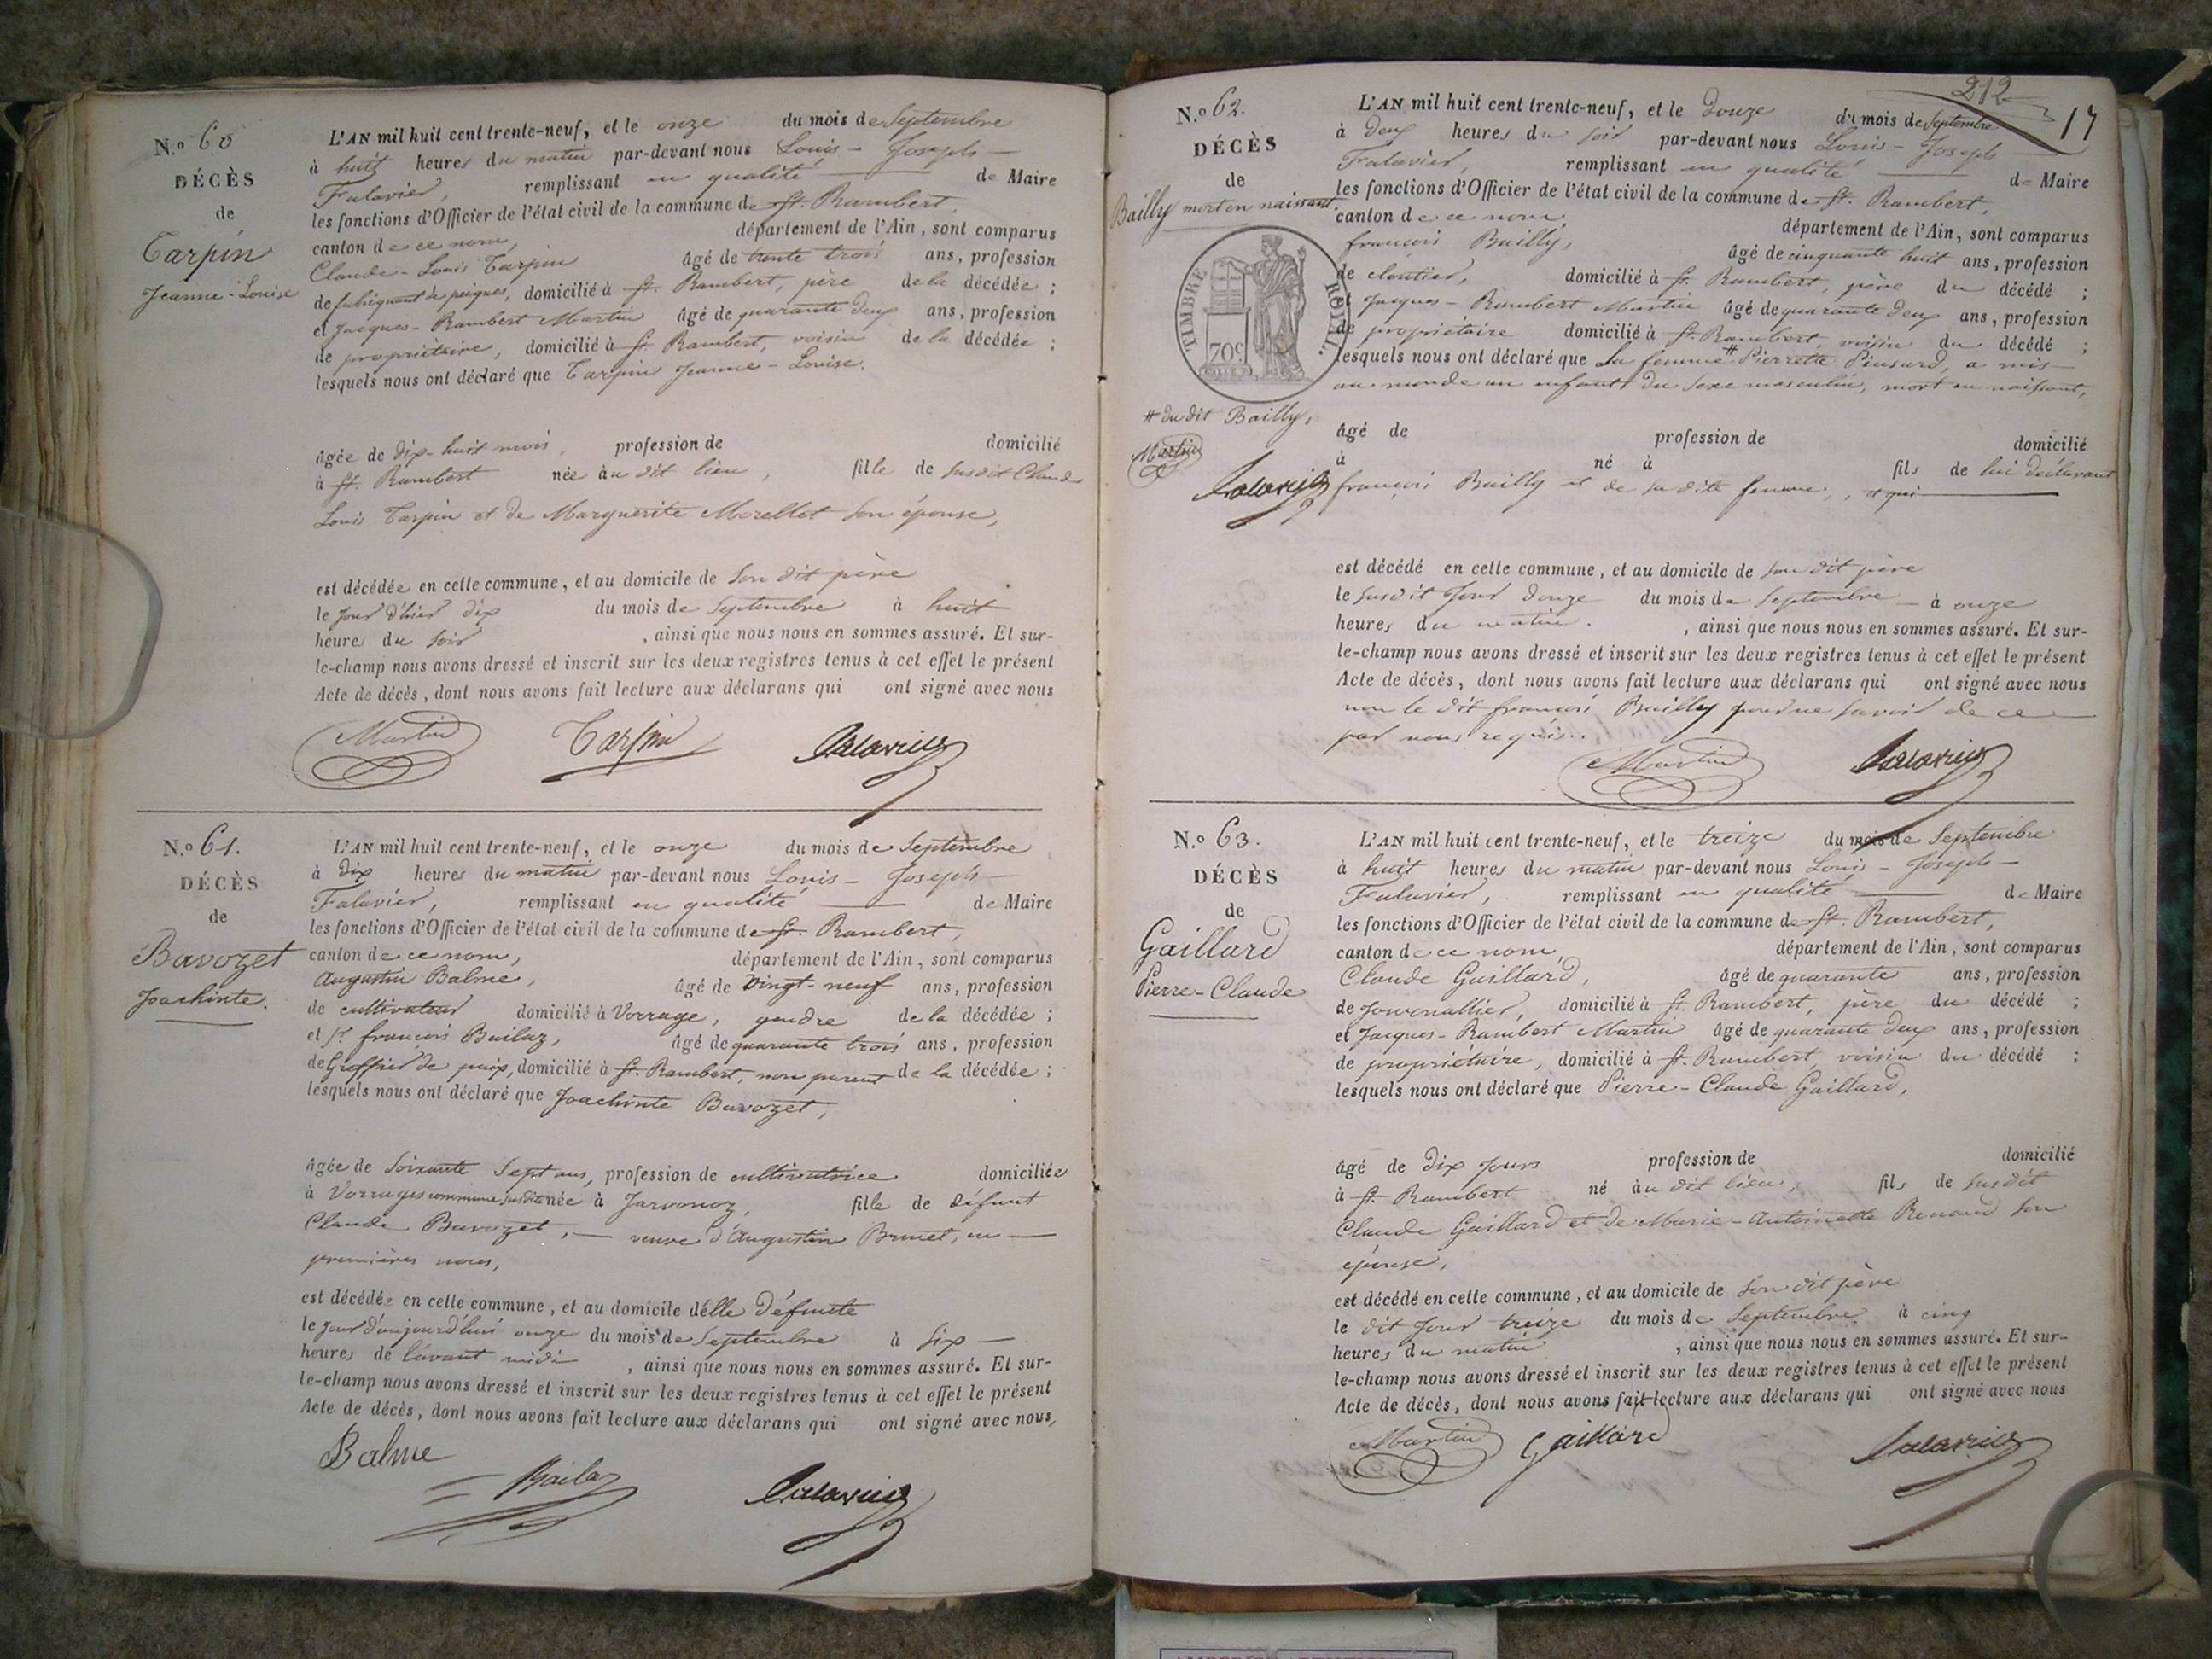 N.º 60
DÉCÈS
de
Tarpin
Jeanne-Louise
L'AN mil huit cent trente-neuf, et le onze du mois de Septembre
à huit heures du matin par-devant nous Louis - Joseph -
Falavier, remplissant en qualité de Maire
les fonctions d'Officier de l'état civil de la commune de St. Rambert,
canton de ce nom, département de l'Ain, sont comparus
Claude-Louis Tarpin âgé de trente trois ans, profession
de fabriquant de peignes, domicilié à St. Rambert, père de la décédée ;
et Jacques-Rambert Martin âgé de quarante deux ans, profession
de propriétaire, domicilié à St. Rambert, voisin de la décédée ;
lesquels nous ont déclaré que Tarpin Jeanne-Louise.
âgée de dix-huit mois, profession de domicilié
à St. Rambert née au dit lieu, fille de susdit Claude
Louis Tarpin et de Marguerite Morellet son épouse,
est décédée en celle commune, et au domicile de son dit père
le jour d'hier dix du mois de Septembre à huit
heures du soir, ainsi que nous nous en sommes assuré. Et sur-
le-champ nous avons dressé et inscrit sur les deux registres tenus à cet effet le présent
Acte de décès, dont nous avons fait lecture aux déclarans qui ont signé avec nous
Martin Tarpin Falavier
N.º 61.
DÉCÈS
de
Bavozet
Joachinte.
L'AN mil huit cent trente-neuf, et le onze du mois de Septembre
à dix heures du matin par-devant nous Louis - Joseph -
Falavier, remplissant en qualité de Maire
les fonctions d'Officier de l'état civil de la commune de St. Rambert,
canton de ce nom, département de l'Ain, sont comparus
Augustin Balme, âgé de vingt-neuf ans, profession
de cultivateur domicilié à Vorrage, gendre de la décédée ;
et Sr. françois Bailaz, âgé de quarante trois ans, profession
de Greffier de paix, domicilié à St. Rambert, non parent de la décédée ;
lesquels nous ont déclaré que Joachinte Bavozet,
âgée de Soixante Sept ans, profession de cultivatrice domiciliée
à Vorrages commune susdite née à Jarvonoz, fille de défunt
Claude Bavozet, - veuve d'Augustin Brunet, en -
premières noces,
est décédée en celle commune, et au domicile d'elle défunte
le jour d'aujourd'hui onze du mois de Septembre à six -
heures de l'avant midi, ainsi que nous nous en sommes assuré. Et sur-
le-champ nous avons dressé et inscrit sur les deux registres tenus à cet effet le présent
Acte de décès, dont nous avons fait lecture aux déclarans qui ont signé avec nous,
Balme
Bailaz Falavier
212
17
N.º 62.
DÉCÈS
de
Bailly mort en naissant.
TIMBRE ROYAL.
70c
# du dit Bailly,
Martin
Falavier
L'AN mil huit cent trente-neuf, et le douze du mois de Septembre
à deux heures du soir par-devant nous Louis - Joseph -
Falavier, remplissant en qualité de Maire
les fonctions d'Officier de l'état civil de la commune de St. Rambert,
canton de ce nom, département de l'Ain, sont comparus
françois Bailly, âgé de cinquante huit ans, profession
de cloutier, domicilié à St. Rambert, père du décédé ;
et Jacques-Rambert Martin âgé de quarante deux ans, profession
de propriétaire domicilié à St. Rambert, voisin du décédé ;
lesquels nous ont déclaré que la femme # Pierrette Pinsard, a mis -
au monde un enfant du sexe masculin, mort en naissant,
âgé de profession de domicilié
à né à fils de lui déclarant
françois Bailly et de sa dite femme, et qui
est décédé en celle commune, et au domicile de son dit père
le susdit jour douze du mois de Septembre - à onze
heures du matin. , ainsi que nous nous en sommes assuré. Et sur-
le-champ nous avons dressé et inscrit sur les deux registres tenus à cet effet le présent
Acte de décès, dont nous avons fait lecture aux déclarans qui ont signé avec nous
non le dit françois Bailly pour ne savoir de ce
par nous requis.
Martin Falavier
N.º 63.
DÉCÈS
de
Gaillard
Pierre-Claude
L'AN mil huit cent trente-neuf, et le treize du mois de Septembre
à huit heures du matin par-devant nous Louis - Joseph -
Falavier, remplissant en qualité de Maire
les fonctions d'Officier de l'état civil de la commune de St. Rambert,
canton de ce nom, département de l'Ain, sont comparus
Claude Gaillard, âgé de quarante ans, profession
de journallier, domicilié à St. Rambert, père du décédé ;
et Jacques-Rambert Martin âgé de quarante deux ans, profession
de propriétaire, domicilié à St. Rambert, voisin du décédé ;
lesquels nous ont déclaré que Pierre-Claude Gaillard,
âgé de dix jours profession de domicilié
à St. Rambert né au dit lieu, fils de susdit
Claude Gaillard et de Marie-Antoinette Renaud son
épouse,
est décédé en celle commune, et au domicile de son dit père
le dit jour treize du mois de Septembre à cinq
heures du matin, ainsi que nous nous en sommes assuré. Et sur-
le-champ nous avons dressé et inscrit sur les deux registres tenus à cet effet le présent
Acte de décès, dont nous avons fait lecture aux déclarans qui ont signé avec nous
Martin Gaillard Falavier